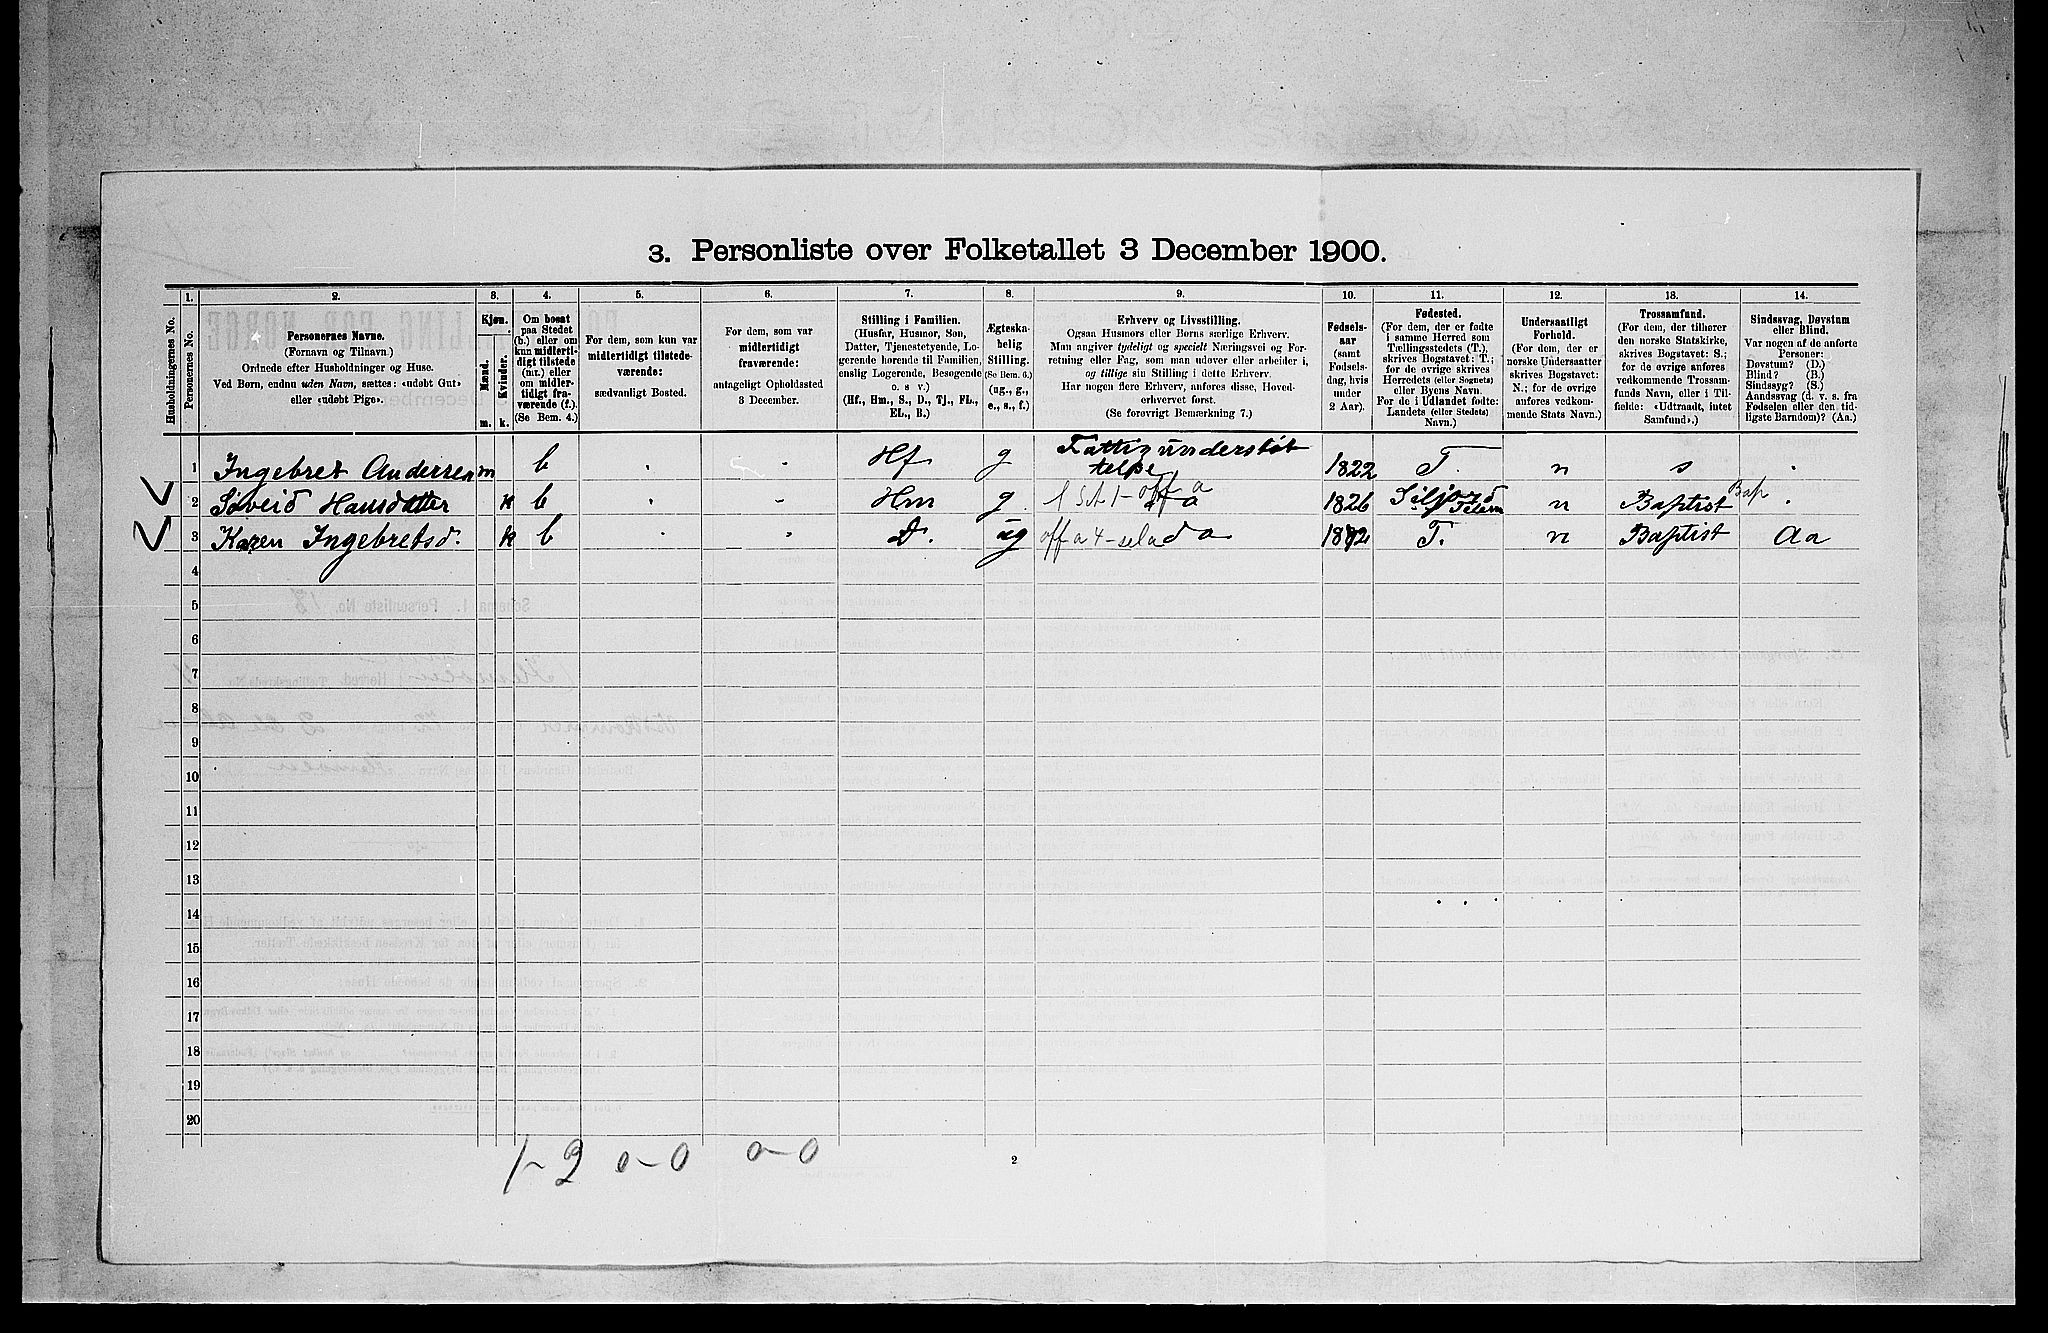 3. Personliste over Folketallet 3 December 1900.
Husholdningernes No.
1.
Personernes No.
2.
Personernes Navne.
(Fornavn og Tilnavn.)
Ordnede efter Husholdninger og Huse.
Ved Børn, endnu uden Navn, sættes: «udøbt Gut»
eller «udøbt Pige».
3.
Kjøn.
Mænd.
Kvinder.
m.
k.
4.
Om bosat
paa Stedet
(b.) eller om
kun midlerti-
digt tilstede
(mt.) eller
om midler-
tidigt fra-
værende (f.).
(Se Bem. 4.)
5.
For dem, som kun var
midlertidigt tilstede-
værende:
sædvanligt Bosted.
6.
For dem, som var
midlertidigt
fraværende:
antageligt Opholdssted
3 December.
7.
Stilling i Familien.
(Husfar, Husmor, Søn,
Datter, Tjenestetyende, Lo-
gerende hørende til Familien,
enslig Logerende, Besøgende
o. s v.)
(Hf., Hm., S., D., Tj., FL.,
EL., B.)
8.
Ægteska-
belig
Stilling.
(Se Bem. 6.)
(ug., g.,
e., s., f.)
9.
Erhverv og Livsstilling.
Ogsaa Husmors eller Børns særlige Erhverv.
Man angiver tydeligt og specielt Næringsvei og For-
retning eller Fag, som man udøver eller arbeider i,
og tillige sin Stilling i dette Erhverv.
Har nogen flere Erhverv, anføres disse, Hoved-
erhvervet først.
(Se forøvrigt Bemærkning 7.)
10.
Fødsels-
aar
(samt
Fødsels-
dag, hvis
under
2 Aar).
11.
Fødested.
(For dem, der er fødte
i samme Herred som
Tællingsstedets (T.),
skrives Bogstavet: T.;
for de øvrige skrives
Herredets (eller Sognets)
eller Byens Navn.
For de i Udlandet fødte:
Landets (eller Stedets)
Navn.)
12.
Undersaatligt
Forhold.
(For dem, der er
norske Undersaatter
skrives Bogstavet:
N.; for de øvrige
anføres vedkom-
mende Stats Navn.)
13.
Trossamfund.
(For dem, der tilhører
den norske Statskirke,
skrives Bogstavet: S.;
for de øvrige anføres
vedkommende Trossam-
funds Navn, eller i Til-
fælde: «Udtraadt, intet
Samfund».)
14.
Sindssvag, Døvstum
eller Blind.
Var nogen af de anførte
Personer:
Døvstum? (D.)
Blind? (B.)
Sindssyg? (S.)
Aandssvag (d. v. s. fra
Fødselen eller den tid-
ligste Barndom)? (Aa.)
1 Ingebret Andersen m b Hf g Fattigunderstøt 1822 T. n s
2 Søveid Hansdatter k b Hm g 1826 Siljord Telem n Baptist Bap
3 Karen Ingebretsd. k b D. ug 1872 T. n Baptist Aa
4
5
6
7
8
9
10
11
12
13
14
15
16
17
18
19
20
1-2 0-0 0-0
2